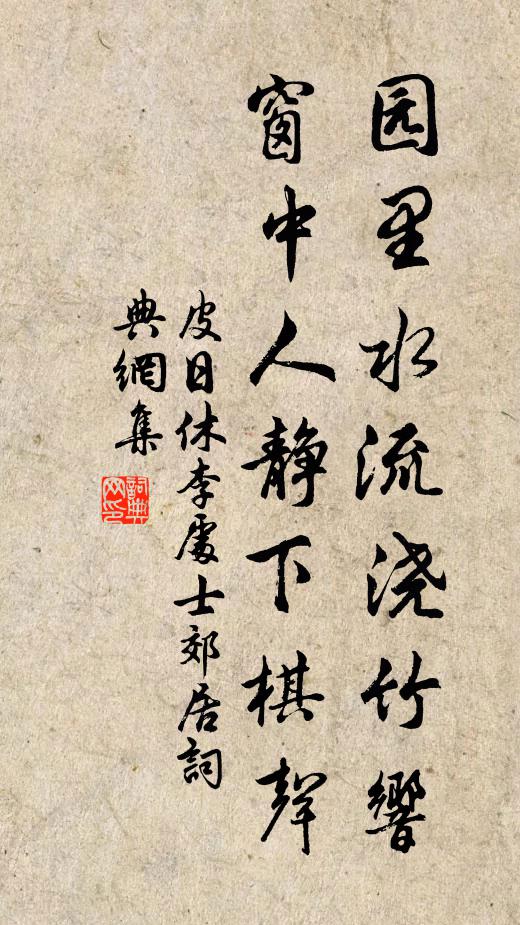 园里水流浇竹響
窗中人静下棋聲
皮日休李處士郊居詞
典網集
詞典网印